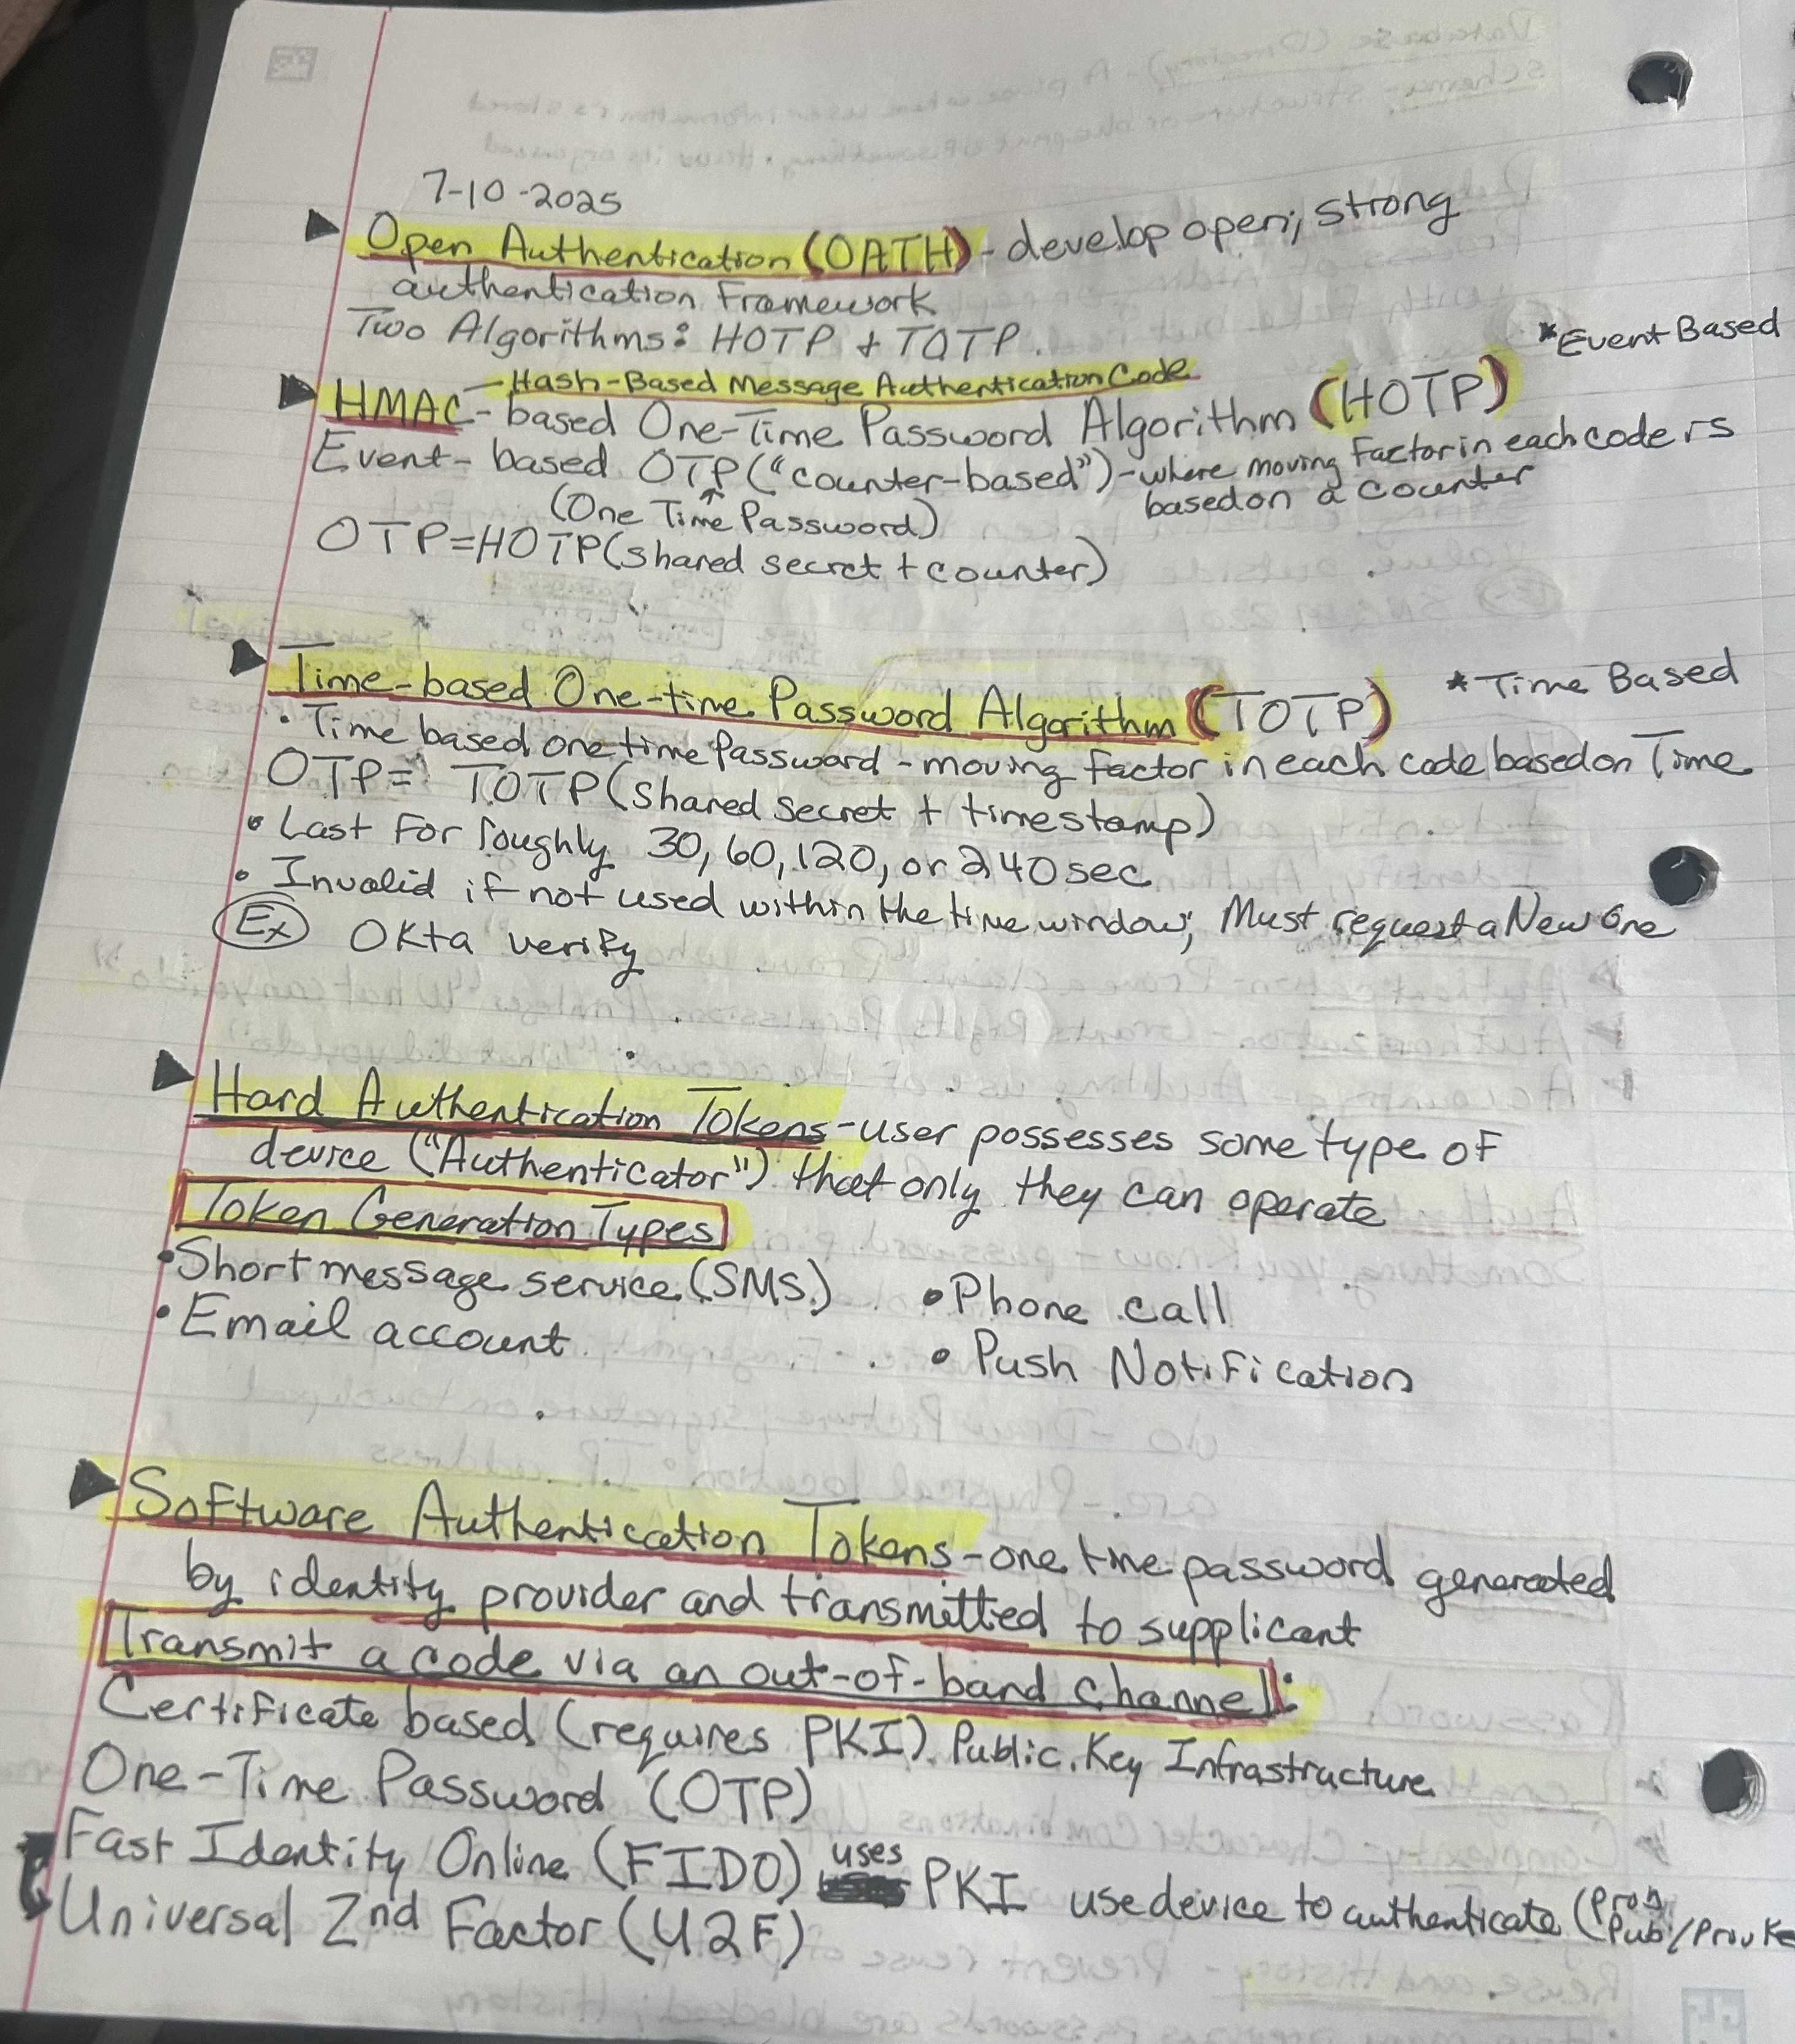 7-10-2025
Open Authentication (OATH) - develop open; strong
authentication Framework
Two Algorithms: HOTP + TOTP.
*Event Based
Hash-Based Message Authentication Code
HMAC-based One-Time Password Algorithm (HOTP)
Event-based OTP ("counter-based") - where moving Factor in each code is
based on a counter
(One Time Password)
OTP=HOTP(shared secret + counter)
Time-based One-time Password Algorithm (TOTP) *Time Based
• Time based one time Password - moving factor in each code based on Time
OTP= TOTP(shared secret + timestamp)
• Last For roughly 30, 60, 120, or 240 sec
• Invalid if not used within the time window; Must request a New One
Ex Okta verify
Hard Authentication Tokens - user possesses some type of
device ("Authenticator") that only they can operate
Token Generation Types
• Short message service (SMS) • Phone call
• Email account • Push Notification
Software Authentication Tokens - one time password generated
by identity provider and transmitted to supplicant
Transmit a code via an out-of-band channel:
Certificate based (requires PKI) Public Key Infrastructure
One-Time Password (OTP)
Fast Identity Online (FIDO) uses PKI use device to authenticate (
Pub/
Universal 2nd Factor (U2F)